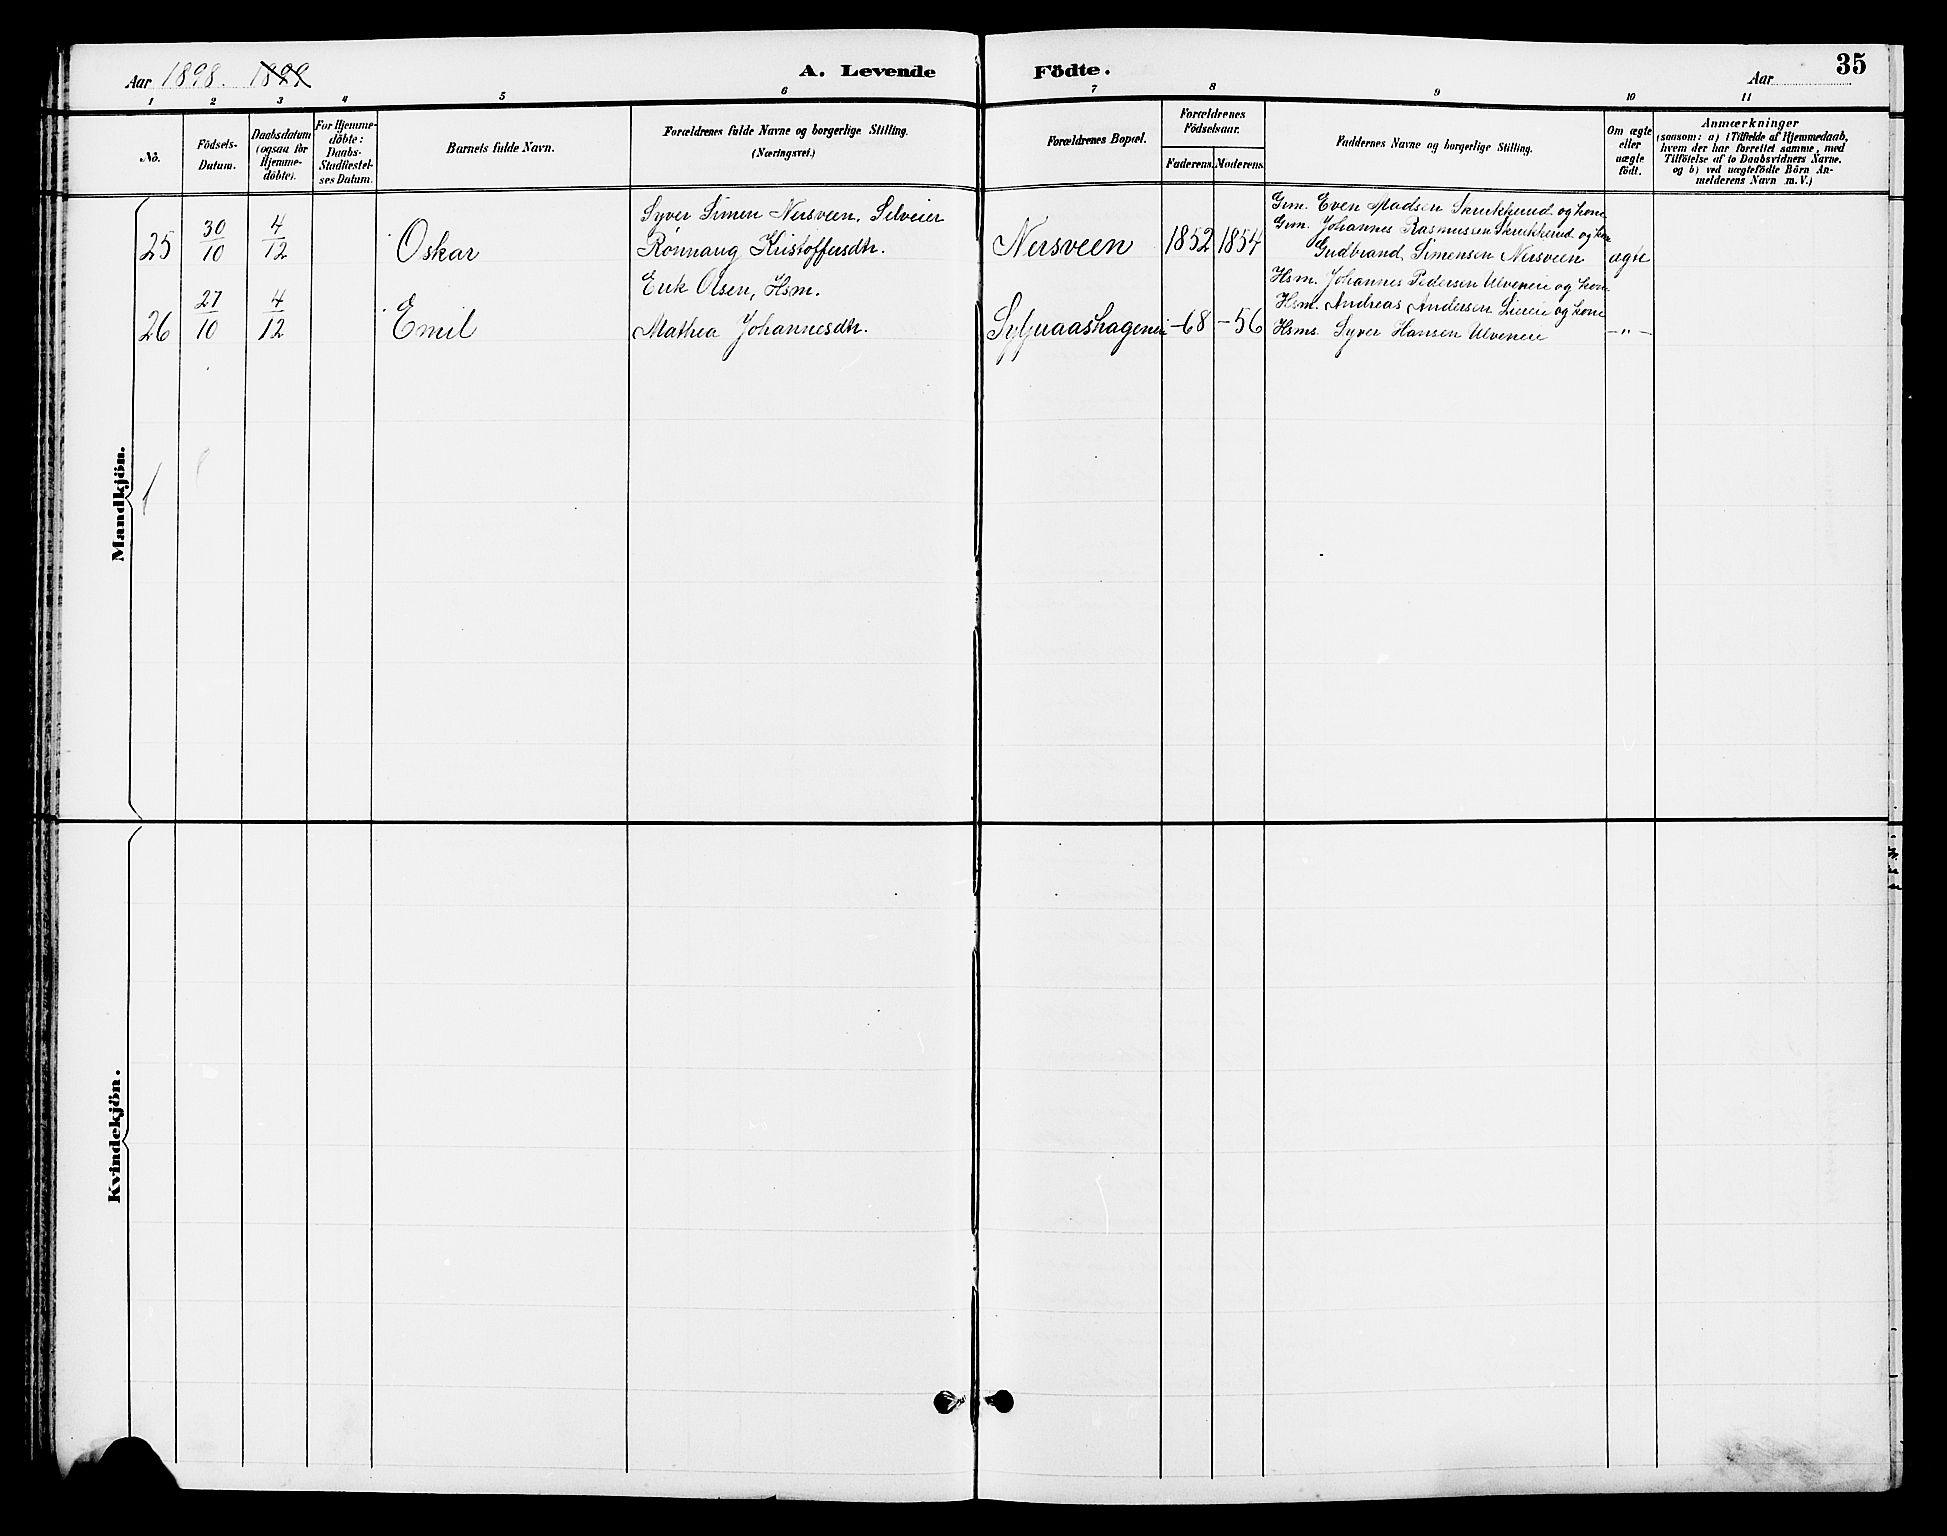 Aar 1898. 1899
A. Levende Födte.
Aar
35
1 2 3 4 5 6 7 8 9 10 11
No.
Födsels-Datum.
Daabsdatum (ogsaa for Hjemme-döbte).
For Hjemme-döbte: Daabs-Stadfæstel-ses Datum.
Barnets fulde Navn.
Forældrenes fulde Navne og borgerlige Stilling.
(Næringsvei.)
Forældrenes Bopæl.
Forældrenes Födselsaar.
Faderens. Moderens.
Faddernes Navne og borgerlige Stilling.
Om ægte eller uægte födt.
Anmærkninger
(saasom: a) i Tilfælde af Hjemmedaab,
hvem der har forrettet samme, med
Tilföielse af to Daabsvidners Navne.
og b) ved uægtefödte Börn An-
melderens Navn m. V.)
Mandkjön.
25 30/10 4/12 Oskar
Syver Simen Nersveen, Selveier
Rönnaug Kristoffersdtr.
Nersveen 1852 1854
Gm. Even Madsen Skrukkerud og kone
Gm. Johannes Rasmussen Skrukkerud og kone
Gudbrand Simensen Nersveen ægte
26 27/10 4/12 Emil
Erik Olsen, Hsm.
Mathea Johannesdtr.
-68 -56
Hsm. Johannes Pedersen Ulveneie og kone
Hsm. Andreas Andersen Lieeie og kone
Hsms. Syver Hansen Ulveneie -"-
Kvindekjön.